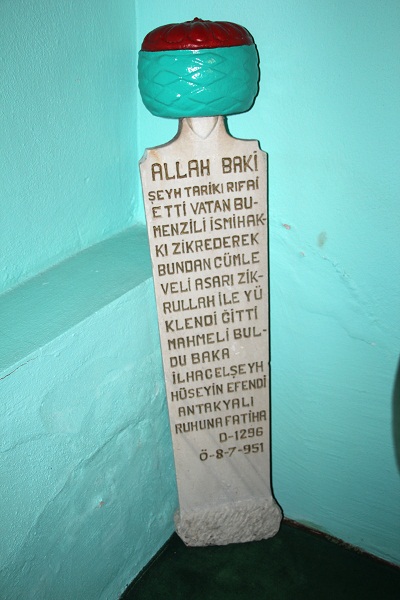 ALLAH BAKİ
ŞEYH TARİKİ RIFAİ
ETTİ VATAN BU-
MENZİLİ İSMİHAK-
KI ZİKREDEREK
BUNDAN CÜMLE
VELİ ASARI ZİK-
RULLAH İLE YÜ
KLENDİ ĞİTTİ
MAHMELİ BUL-
DU BAKA
İLHACELŞEYH
HÜSEYİN EFENDİ
ANTAKYALI
RUHUNA FATİHA
D-1296
Ö-8-7-951